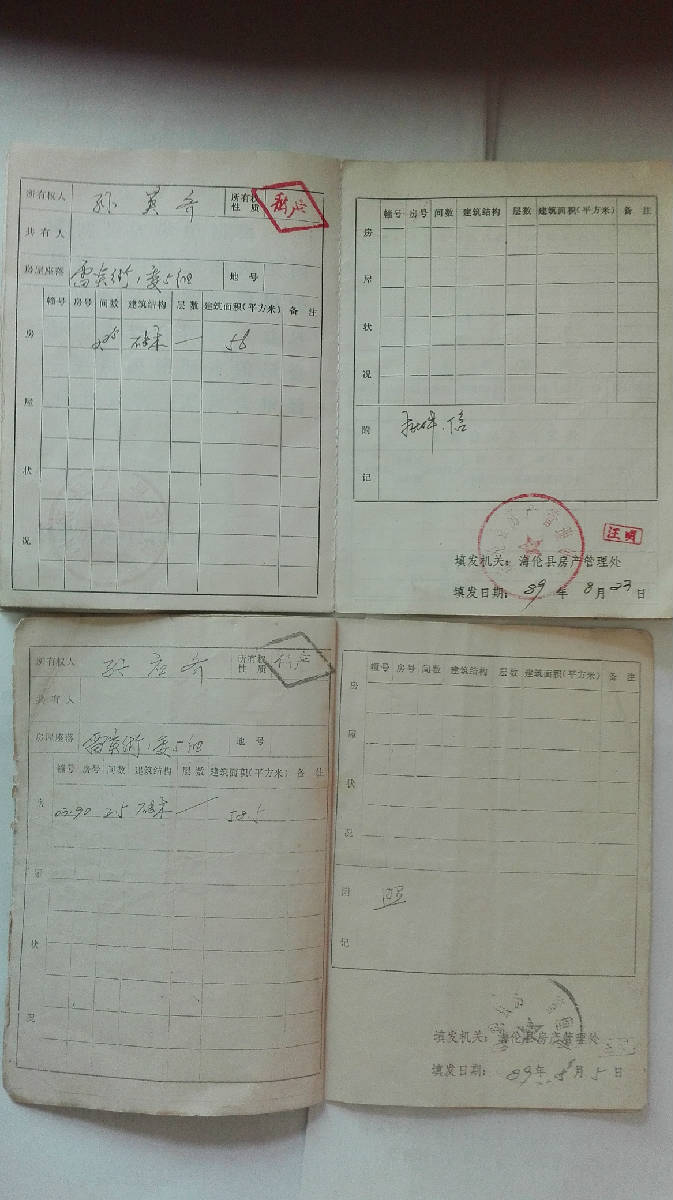 所有权人 孙英奇 所有权性质 私产
共有人
房屋座落 雷炎街1委5组 地号
幢号 房号 间数 建筑结构 层数 建筑面积(平方米) 备注
2.5 砖木 一 58
房屋状况
幢号 房号 间数 建筑结构 层数 建筑面积(平方米) 备注
房屋状况
附记
填发机关：海伦县房产管理处
汪明
填发日期：89年8月23日
所有权人 所有权性质 私产
共有人
房屋座落 雷炎街1委5组 地号
幢号 房号 间数 建筑结构 层数 建筑面积(平方米) 备注
0290 2.5 砖木 一 58.5
房屋状况
幢号 房号 间数 建筑结构 层数 建筑面积(平方米) 备注
房屋状况
附记
填发机关：海伦县房产管理处
填发日期：89年8月5日